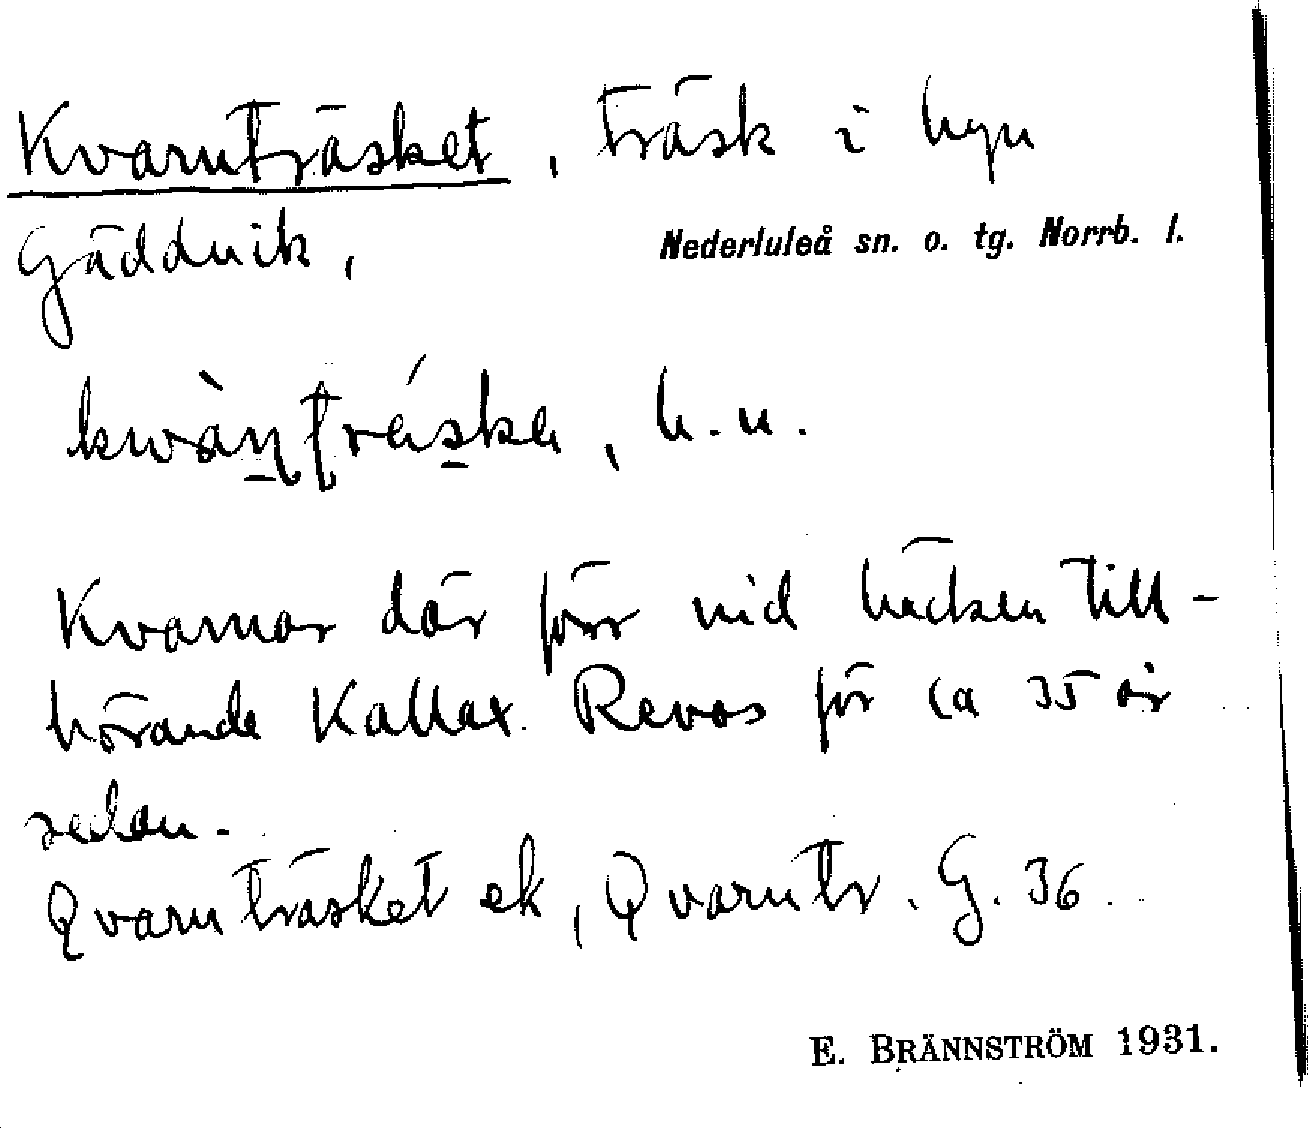 Kvarnträsket, träsk i byn
Gäddvik, Nederluleå sn. o. tg. Norrb. l.
kwàṉtré̱ska, b. u.
Kvarnar där förr vid bäcken till-
hörande Kallax. Revos för ca 35 år
sedan.
Qvarnträsket ek, Qvarntr. G. 36
E. BRÄNNSTRÖM 1931.